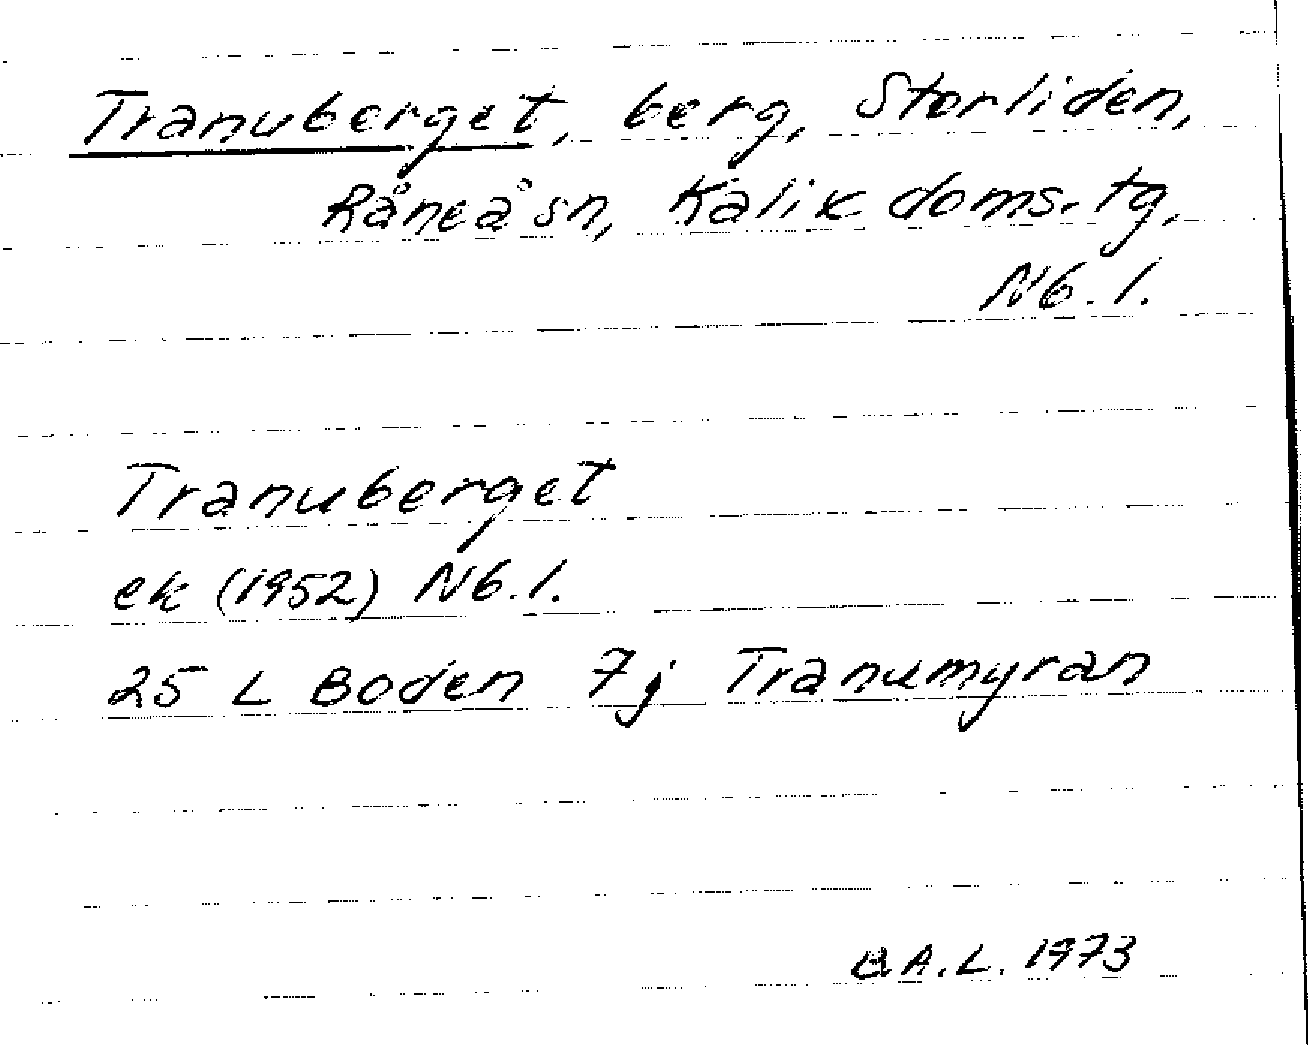 Tranuberget, berg, Storliden,
Råneå sn, Kalix doms. tg,
Nb. l.
Tranuberget
ek (1952) Nb. l.
25 L Boden 7j Tranumyran
B A. L. 1973